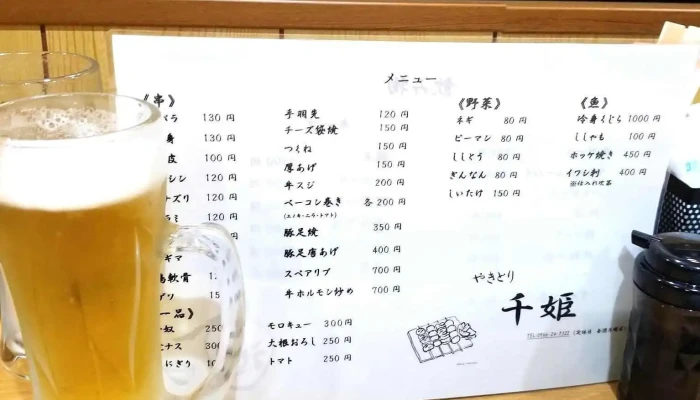 メニュー
《串》
バラ 130 円
身 130 円
皮 100 円
シン 120 円
ズリ 120 円
ミ 120 円
ギマ
軟骨 1
リ 15
一品》
奴 250
ナス 300
にぎり 150
手羽先 120 円
チーズ袋焼 150 円
つくね 150 円
厚あげ 150 円
牛スジ 200 円
ベーコン巻き 各 200 円
(エノキ・ニラ・トマト)
豚足焼 350 円
豚足唐あげ 400 円
スペアリブ 700 円
牛ホルモン炒め 700 円
モロキュー 300円
大根おろし 250 円
トマト 250 円
《野菜》
ネギ 80 円
ピーマン 80 円
ししとう 80 円
ぎんなん 80 円
しいたけ 150 円
《魚》
冷身くじら 1000 円
ししゃも 100 円
ホッケ焼き 450 円
イワシ刺 400 円
※仕入れ次第
やきとり
千姫